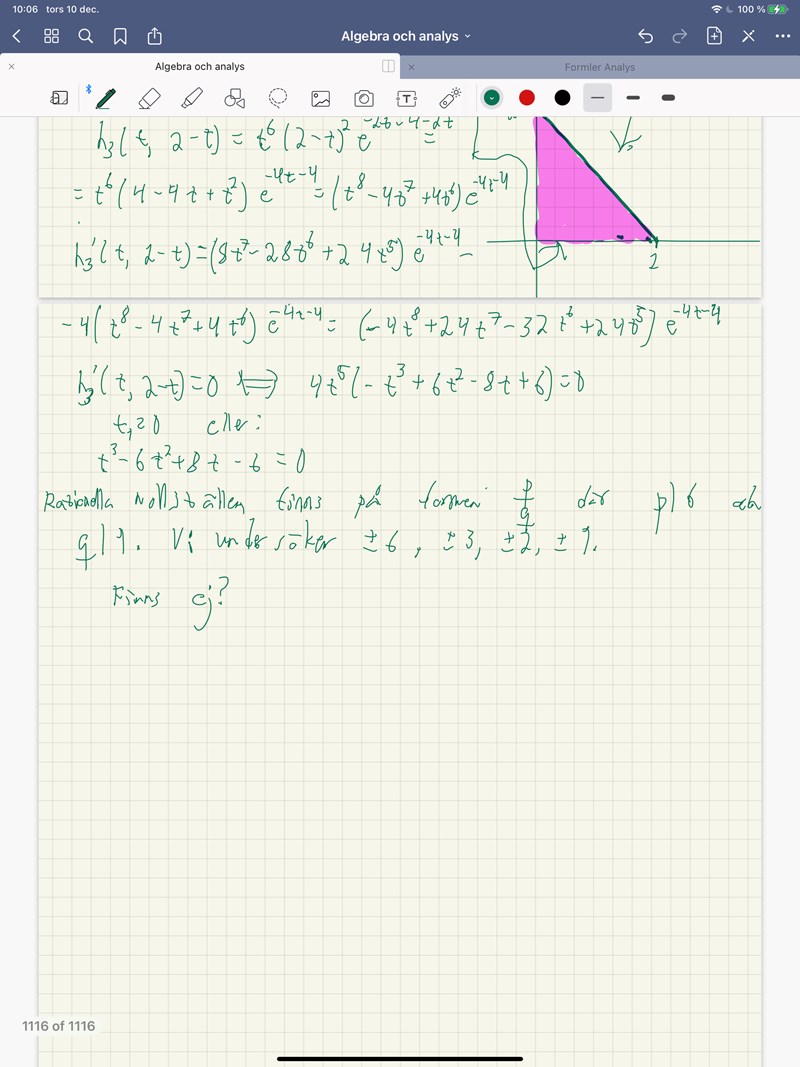 10:06 tors 10 dec.
100 %
Algebra och analys
Algebra och analys
Formler Analys
h₃(t, 2-t) = t⁶(2-t)² e =
= t⁶(4-4t+t²) e⁻⁴ᵗ⁻⁴ = (t⁸-4t⁷+4t⁶)e⁻⁴ᵗ⁻⁴
h₃'(t, 2-t)=(8t⁷-28t⁶+24t⁵) e⁻⁴ᵗ⁻⁴ -
2
-4(t⁸-4t⁷+4t⁶) e⁻⁴ᵗ⁻⁴ = (-4t⁸+24t⁷-32t⁶+24t⁵) e⁻⁴ᵗ⁻⁴
h₃'(t, 2-t)=0 ⟺ 4t⁵(-t³+6t²-8t+6)=0
t₁=0 eller:
t³-6t²+8t-6=0
Rationella nollställen finns på formen p/q där p|6 och
q|1. Vi undersöker ±6, ±3, ±2, ±1.
Finns ej?
1116 of 1116